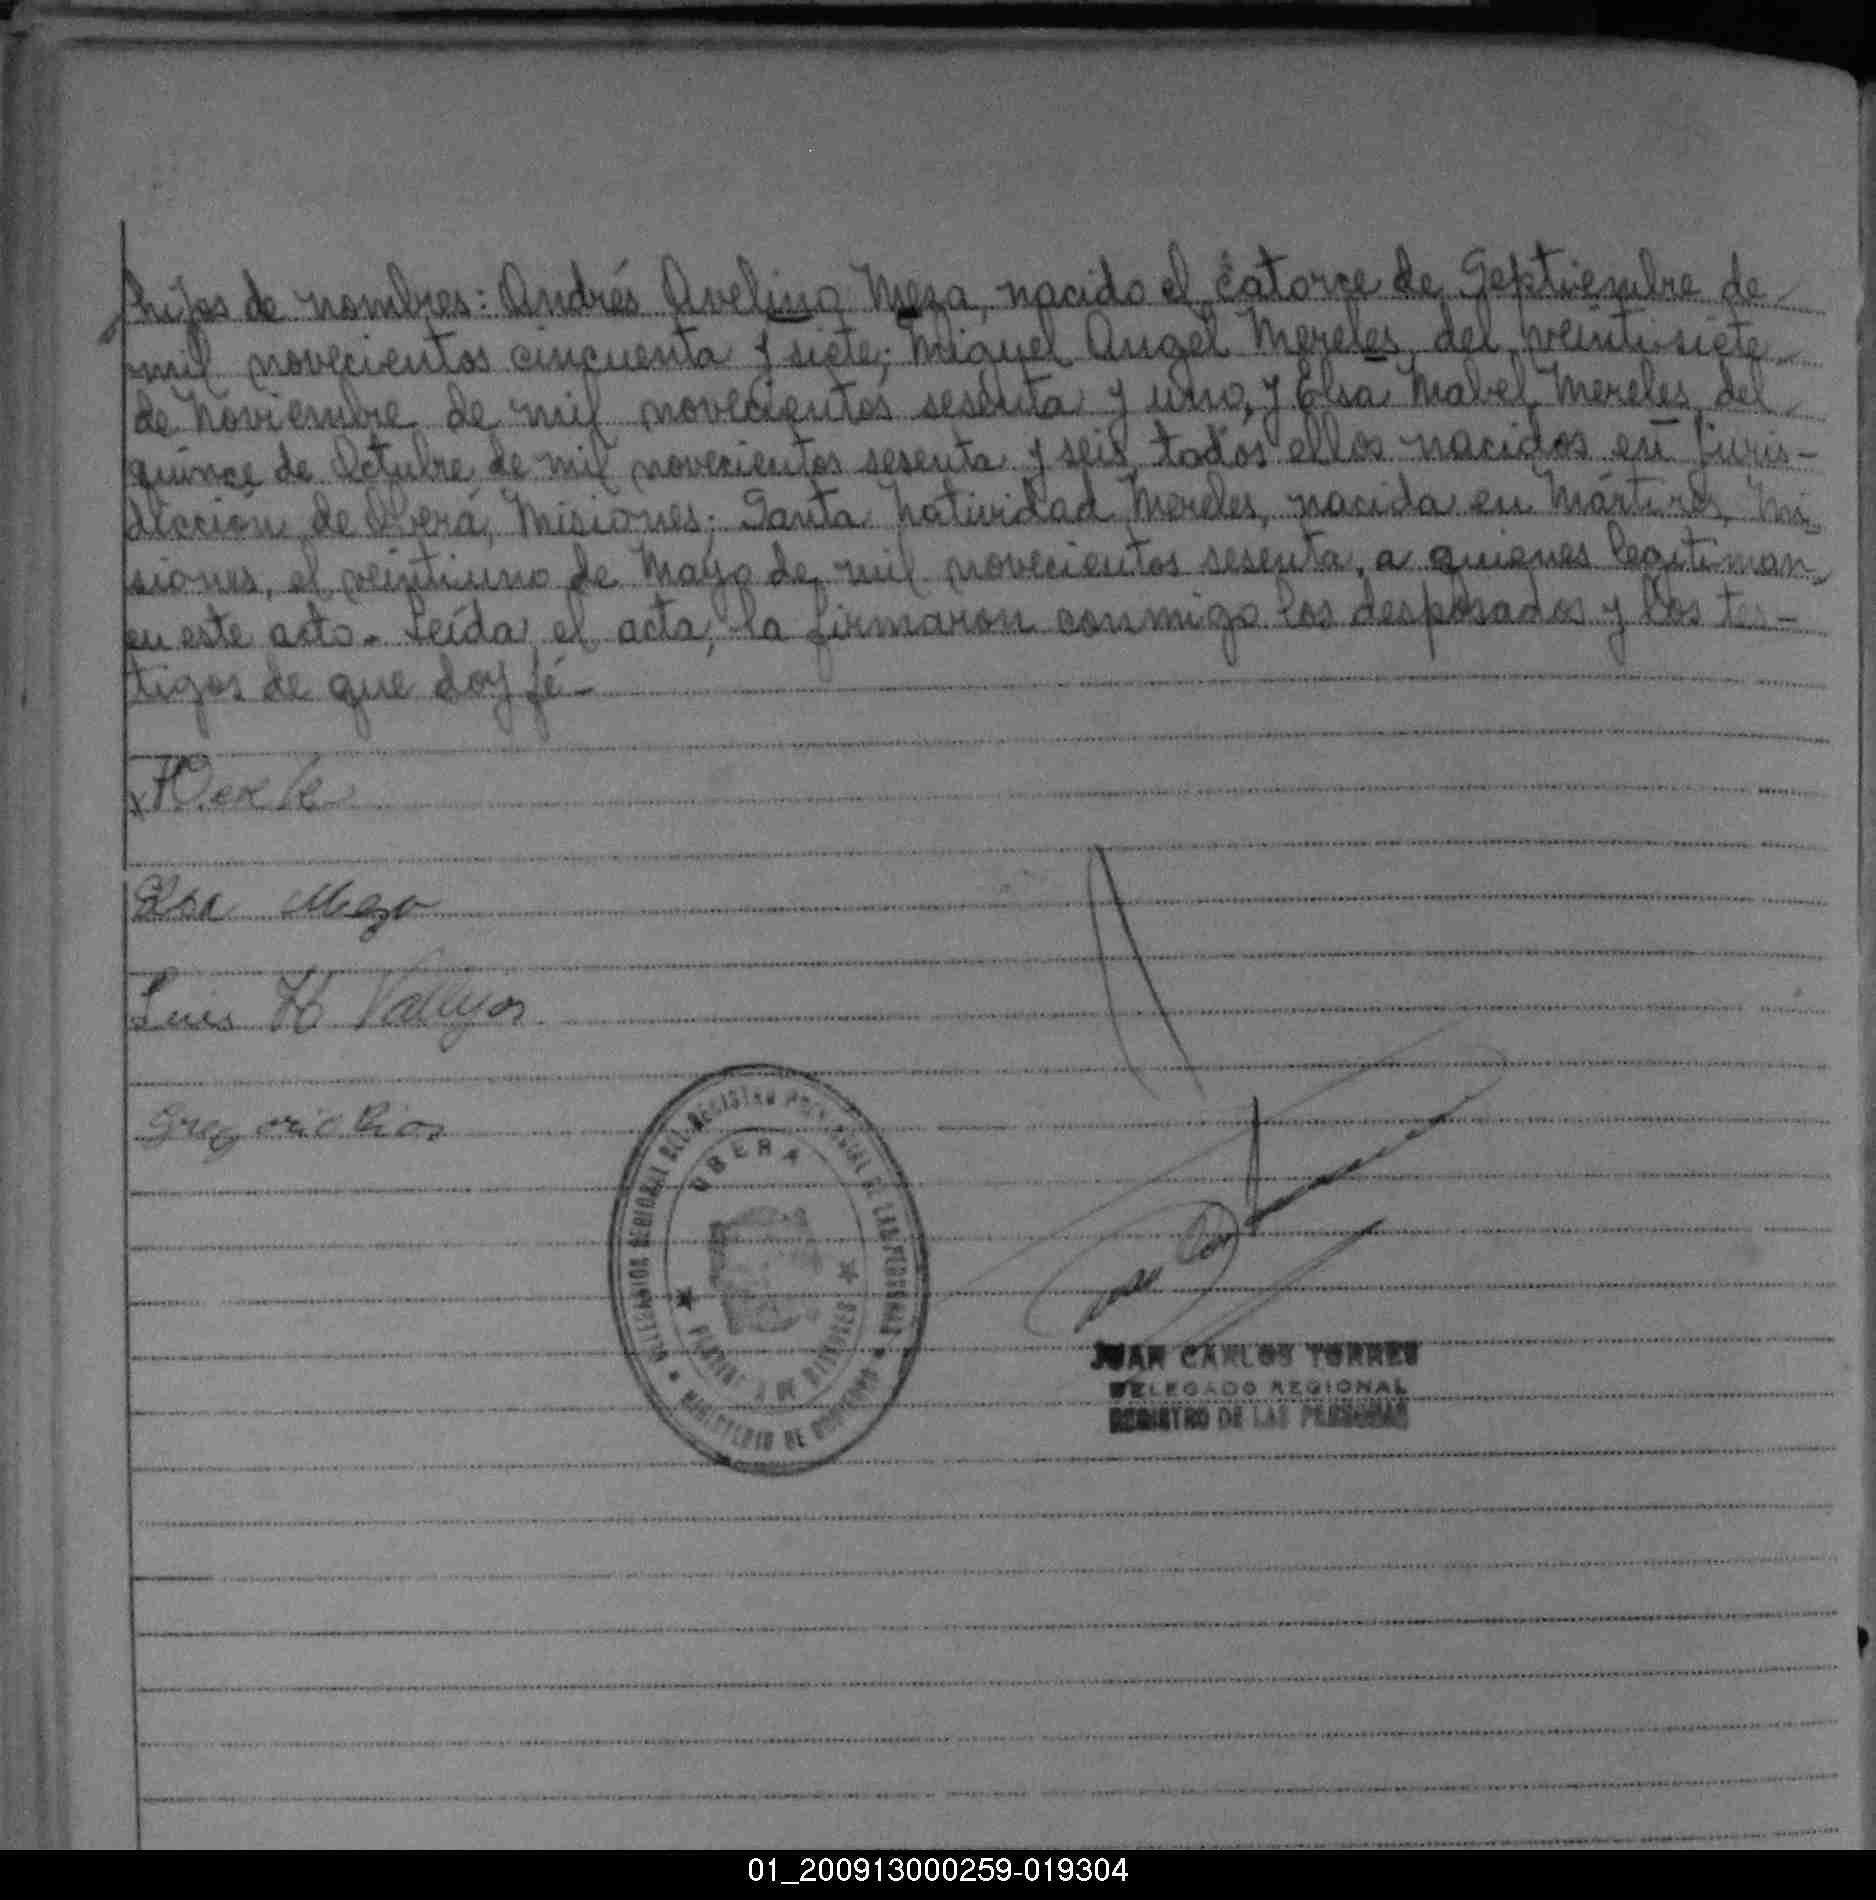 hijos de nombres: Andrés Avelino Meza, nacido el catorce de Septiembre de
mil novecientos cincuenta y siete; Miguel Angel Mereles, del veintisiete
de Noviembre de mil novecientos sesenta y uno, y Elsa Mabel Mereles, del
quince de Octubre de mil novecientos sesenta y seis, todos ellos nacidos en juris-
dicción de Oberá, Misiones; Santa Natividad Mereles, nacida en Mártires, Mi-
siones, el veintiuno de Mayo de mil novecientos sesenta, a quienes legitiman
en este acto. Leída el acta, la firmaron conmigo los desposados y los tes-
tigos de que doy fé.-
Meza
Luis H Vallejos
Gregorio Rios
DELEGACION REGIONAL DEL REGISTRO PROVINCIAL DE LAS PERSONAS
OBERA
MINISTERIO DE GOBIERNO
JUAN CARLOS TORRES
DELEGADO REGIONAL
REGISTRO DE LAS PERSONAS
01_200913000259-019304